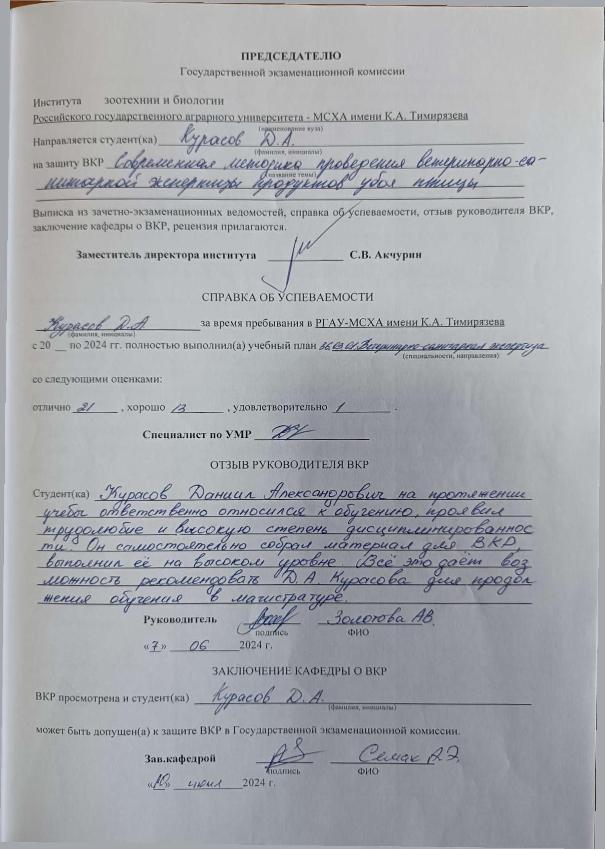 ПРЕДСЕДАТЕЛЮ
Государственной экзаменационной комиссии
Института зоотехнии и биологии
Российского государственного аграрного университета - МСХА имени К.А. Тимирязева
(наименование вуза)
Направляется студент(ка) Курасов Д.А.
(фамилия, инициалы)
на защиту ВКР Современная методика проведения ветеринарно-са-
(название темы)
нитарной экспертизы продуктов убоя птицы
Выписка из зачетно-экзаменационных ведомостей, справка об успеваемости, отзыв руководителя ВКР,
заключение кафедры о ВКР, рецензия прилагаются.
Заместитель директора института С.В. Акчурин
СПРАВКА ОБ УСПЕВАЕМОСТИ
Курасов Д.А за время пребывания в РГАУ-МСХА имени К.А. Тимирязева
(фамилия, инициалы)
с 20 __ по 2024 гг. полностью выполнил(а) учебный план 36.03.01 Ветеринарно-санитарная экспертиза
(специальности, направления)
со следующими оценками:
отлично 21, хорошо 13, удовлетворительно 1.
Специалист по УМР
ОТЗЫВ РУКОВОДИТЕЛЯ ВКР
Студент(ка) Курасов Даниил Александрович на протяжении
учебы ответственно относился к обучению, проявил
трудолюбие и высокую степень дисциплинированнос
ти. Он самостоятельно собрал материал для ВКР,
выполнил её на высоком уровне. Всё это даёт воз
можность рекомендовать Д.А. Курасова для продол
жения обучения в магистратуре.
Руководитель Золотова А.В.
подпись ФИО
«7» 06 2024 г.
ЗАКЛЮЧЕНИЕ КАФЕДРЫ О ВКР
ВКР просмотрена и студент(ка) Курасов Д.А.
(фамилия, инициалы)
может быть допущен(а) к защите ВКР в Государственной экзаменационной комиссии.
Зав.кафедрой Семак А.Э.
подпись ФИО
«10» июня 2024 г.